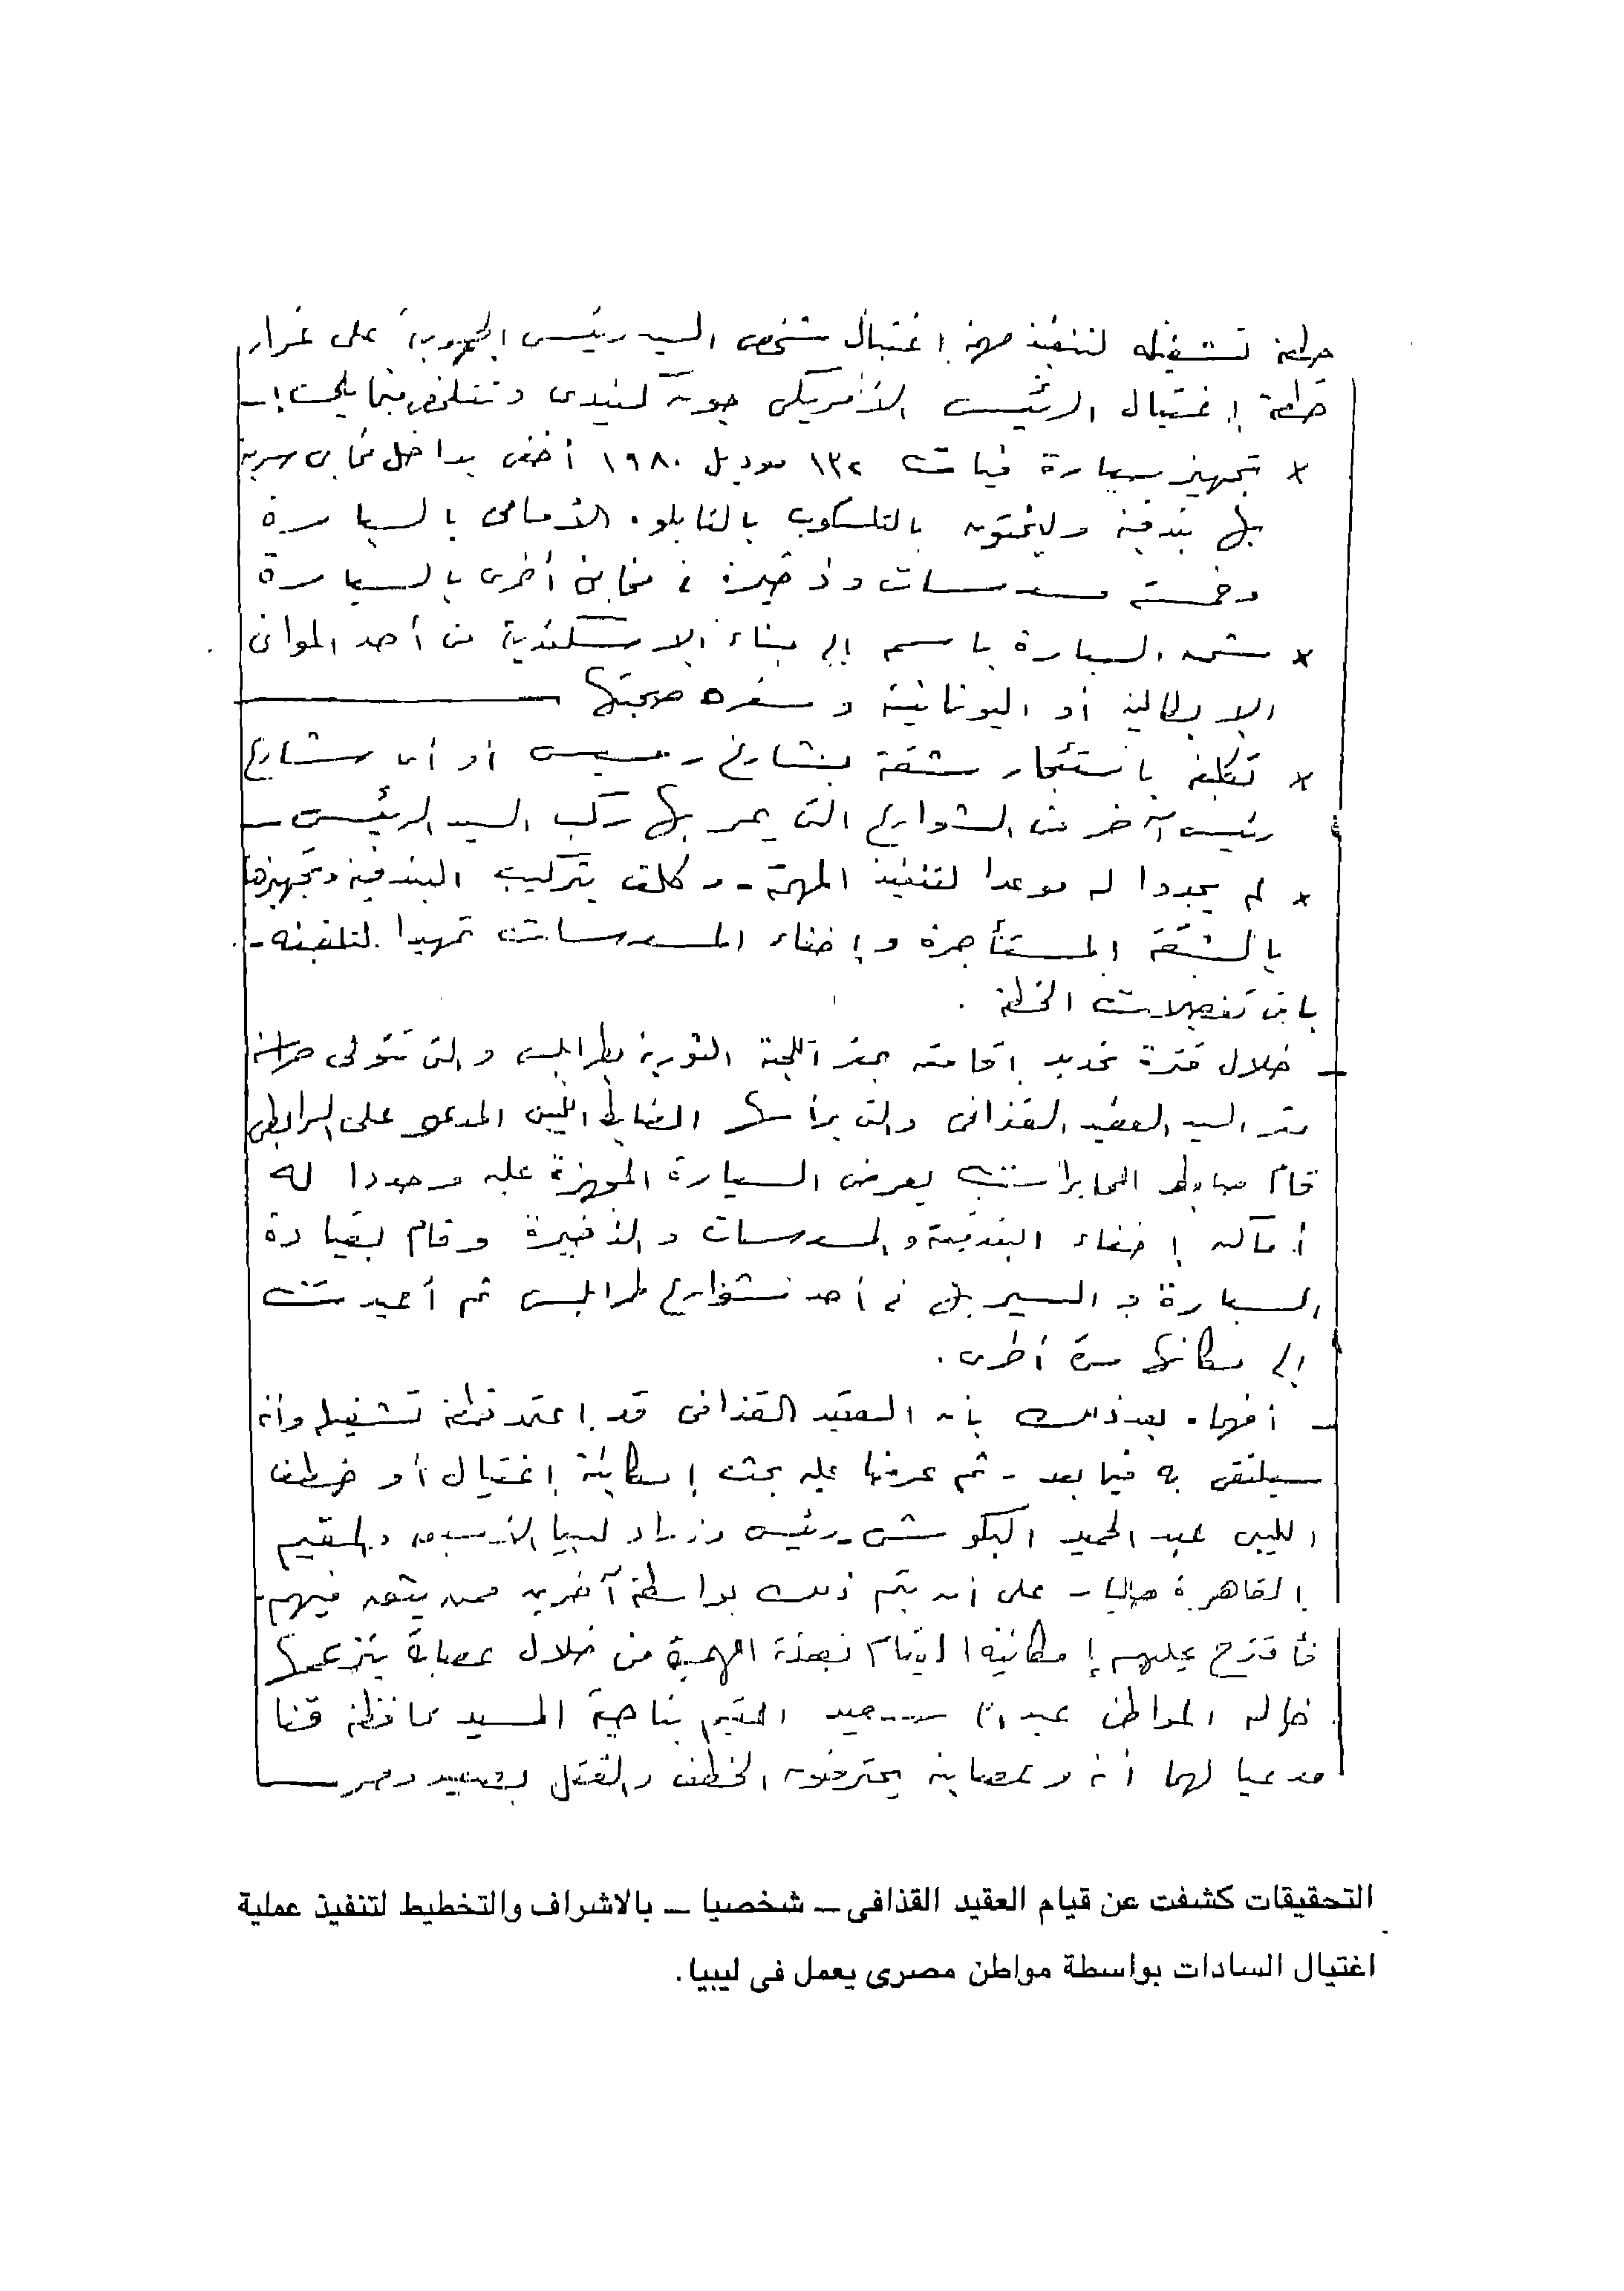 خطة تشغيله لتنفيذ مهمة اغتيال شخص السيد رئيس الجمهورية على غرار
خطة إغتيال الرئيس الأمريكى جون كنيدى وتتلخص فيما يلى :-
× تجهيز سيارة فيات ١٣٢ موديل ١٩٨٠ أخفى بداخل مخابئ سرية
بها بندقية بالتلسكوب بالتابلوه الأمامى بالسيارة
وخمسة مسدسات وذخيرة فى مخابئ أخرى بالسيارة
× شحن السيارة باسمه إلى ميناء الاسكندرية من أحد الموانى
الايطالية أو اليونانية وسفره صحبتها
× تكليفه باستئجار شقة بشارع رمسيس أو أى شارع
رئيسى آخر من الشوارع التى يمر بها ركب السيد الرئيس -
× لم يحددوا له موعدا لتنفيذ المهمة - وكلف بتركيب البندقية وتجهيزها
بالشقة المستأجرة وإخفاء المسدسات تمهيدا لتلقينه -
باقى تفصيلات الخطة .
- خلال فترة تحديد إقامته بمقر اللجنة الثورية بطرابلس والتى تتولى حراسة
مقر السيد العقيد القذافى والتى يرأسها الضابط الليبى المدعو على
قام ضابط المخابرات بعرض السيارة المجهزة عليه وحددوا له
أماكن إخفاء البندقية والمسدسات والذخيرة وقام بقيادة
السيارة والسير بها فى أحد شوارع طرابلس ثم أعيدت
إلى مكانها مرة أخرى .
- أفهماه بعد ذلك بأن العقيد القذافى قد اعتمد خطة تشغيله وأنه
سيلتقى به فيما بعد - ثم عرضا عليه بحث إمكانية إغتيال أو خطف
الليبى عبد الحميد البكوش - رئيس وزراء ليبيا الأسبق والمقيم
بالقاهرة حاليا - على أن يتم ذلك بواسطة آخرين ممن يثق فيهم -
فأقترح عليهم إمكانية القيام بهذه المهمة من خلال عصابة يتزعمها
خاله المواطن سعيد المقيم بناحية المسيد محافظة قنا
مدعيا لهما أنه وعصابته يحترفون الخطف والقتل بصعيد مصر
التحقيقات كشفت عن قيام العقيد القذافى – شخصيا – بالاشراف والتخطيط لتنفيذ عملية
اغتيال السادات بواسطة مواطن مصرى يعمل فى ليبيا.